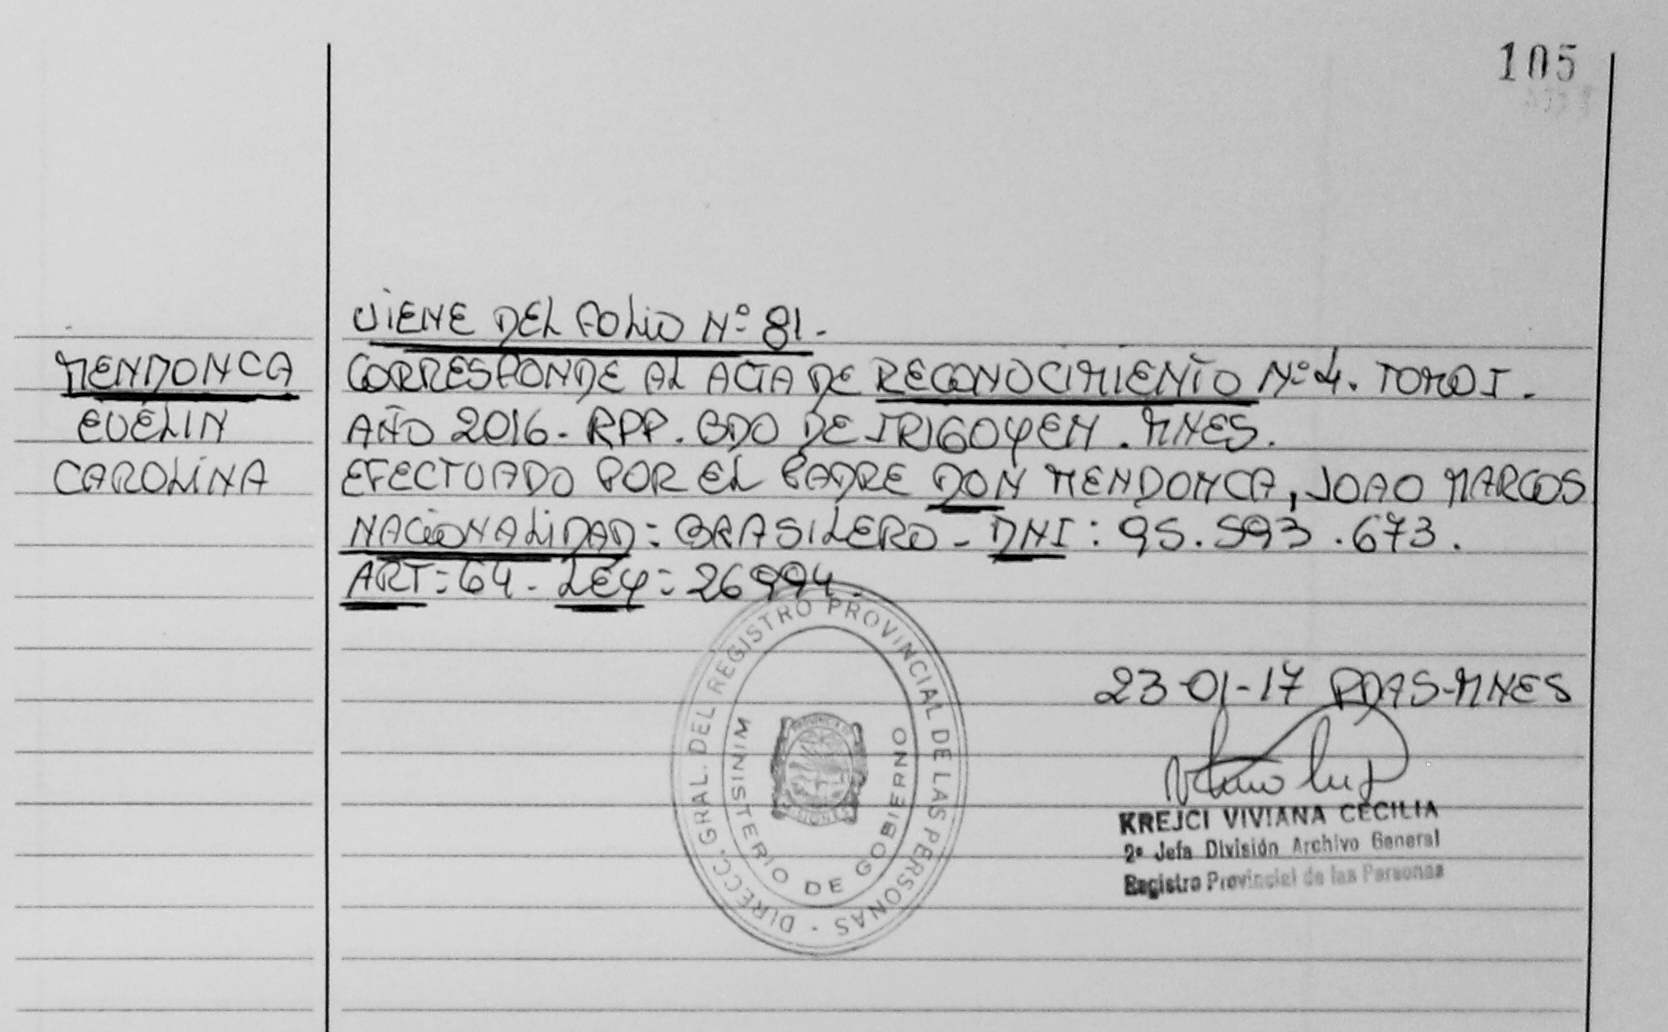 105
VIENE DEL FOLIO Nº 81.
MENDONCA
EVELIN
CAROLINA
CORRESPONDE AL ACTA DE RECONOCIMIENTO Nº 4. TOMO I.
AÑO 2016- RPP. BDO DE IRIGOYEN. MNES.
EFECTUADO POR EL PADRE DON MENDONCA, JOAO MARCOS
NACIONALIDAD: BRASILERO - DNI: 95.593.673.
ART: 64- LEY: 26994.
DIRECC. GRAL. DEL REGISTRO PROVINCIAL DE LAS PERSONAS -
MINISTERIO DE GOBIERNO
23-01-17 PDAS-MNES
KREJCI VIVIANA CECILIA
2ª Jefa División Archivo General
Registro Provincial de las Personas